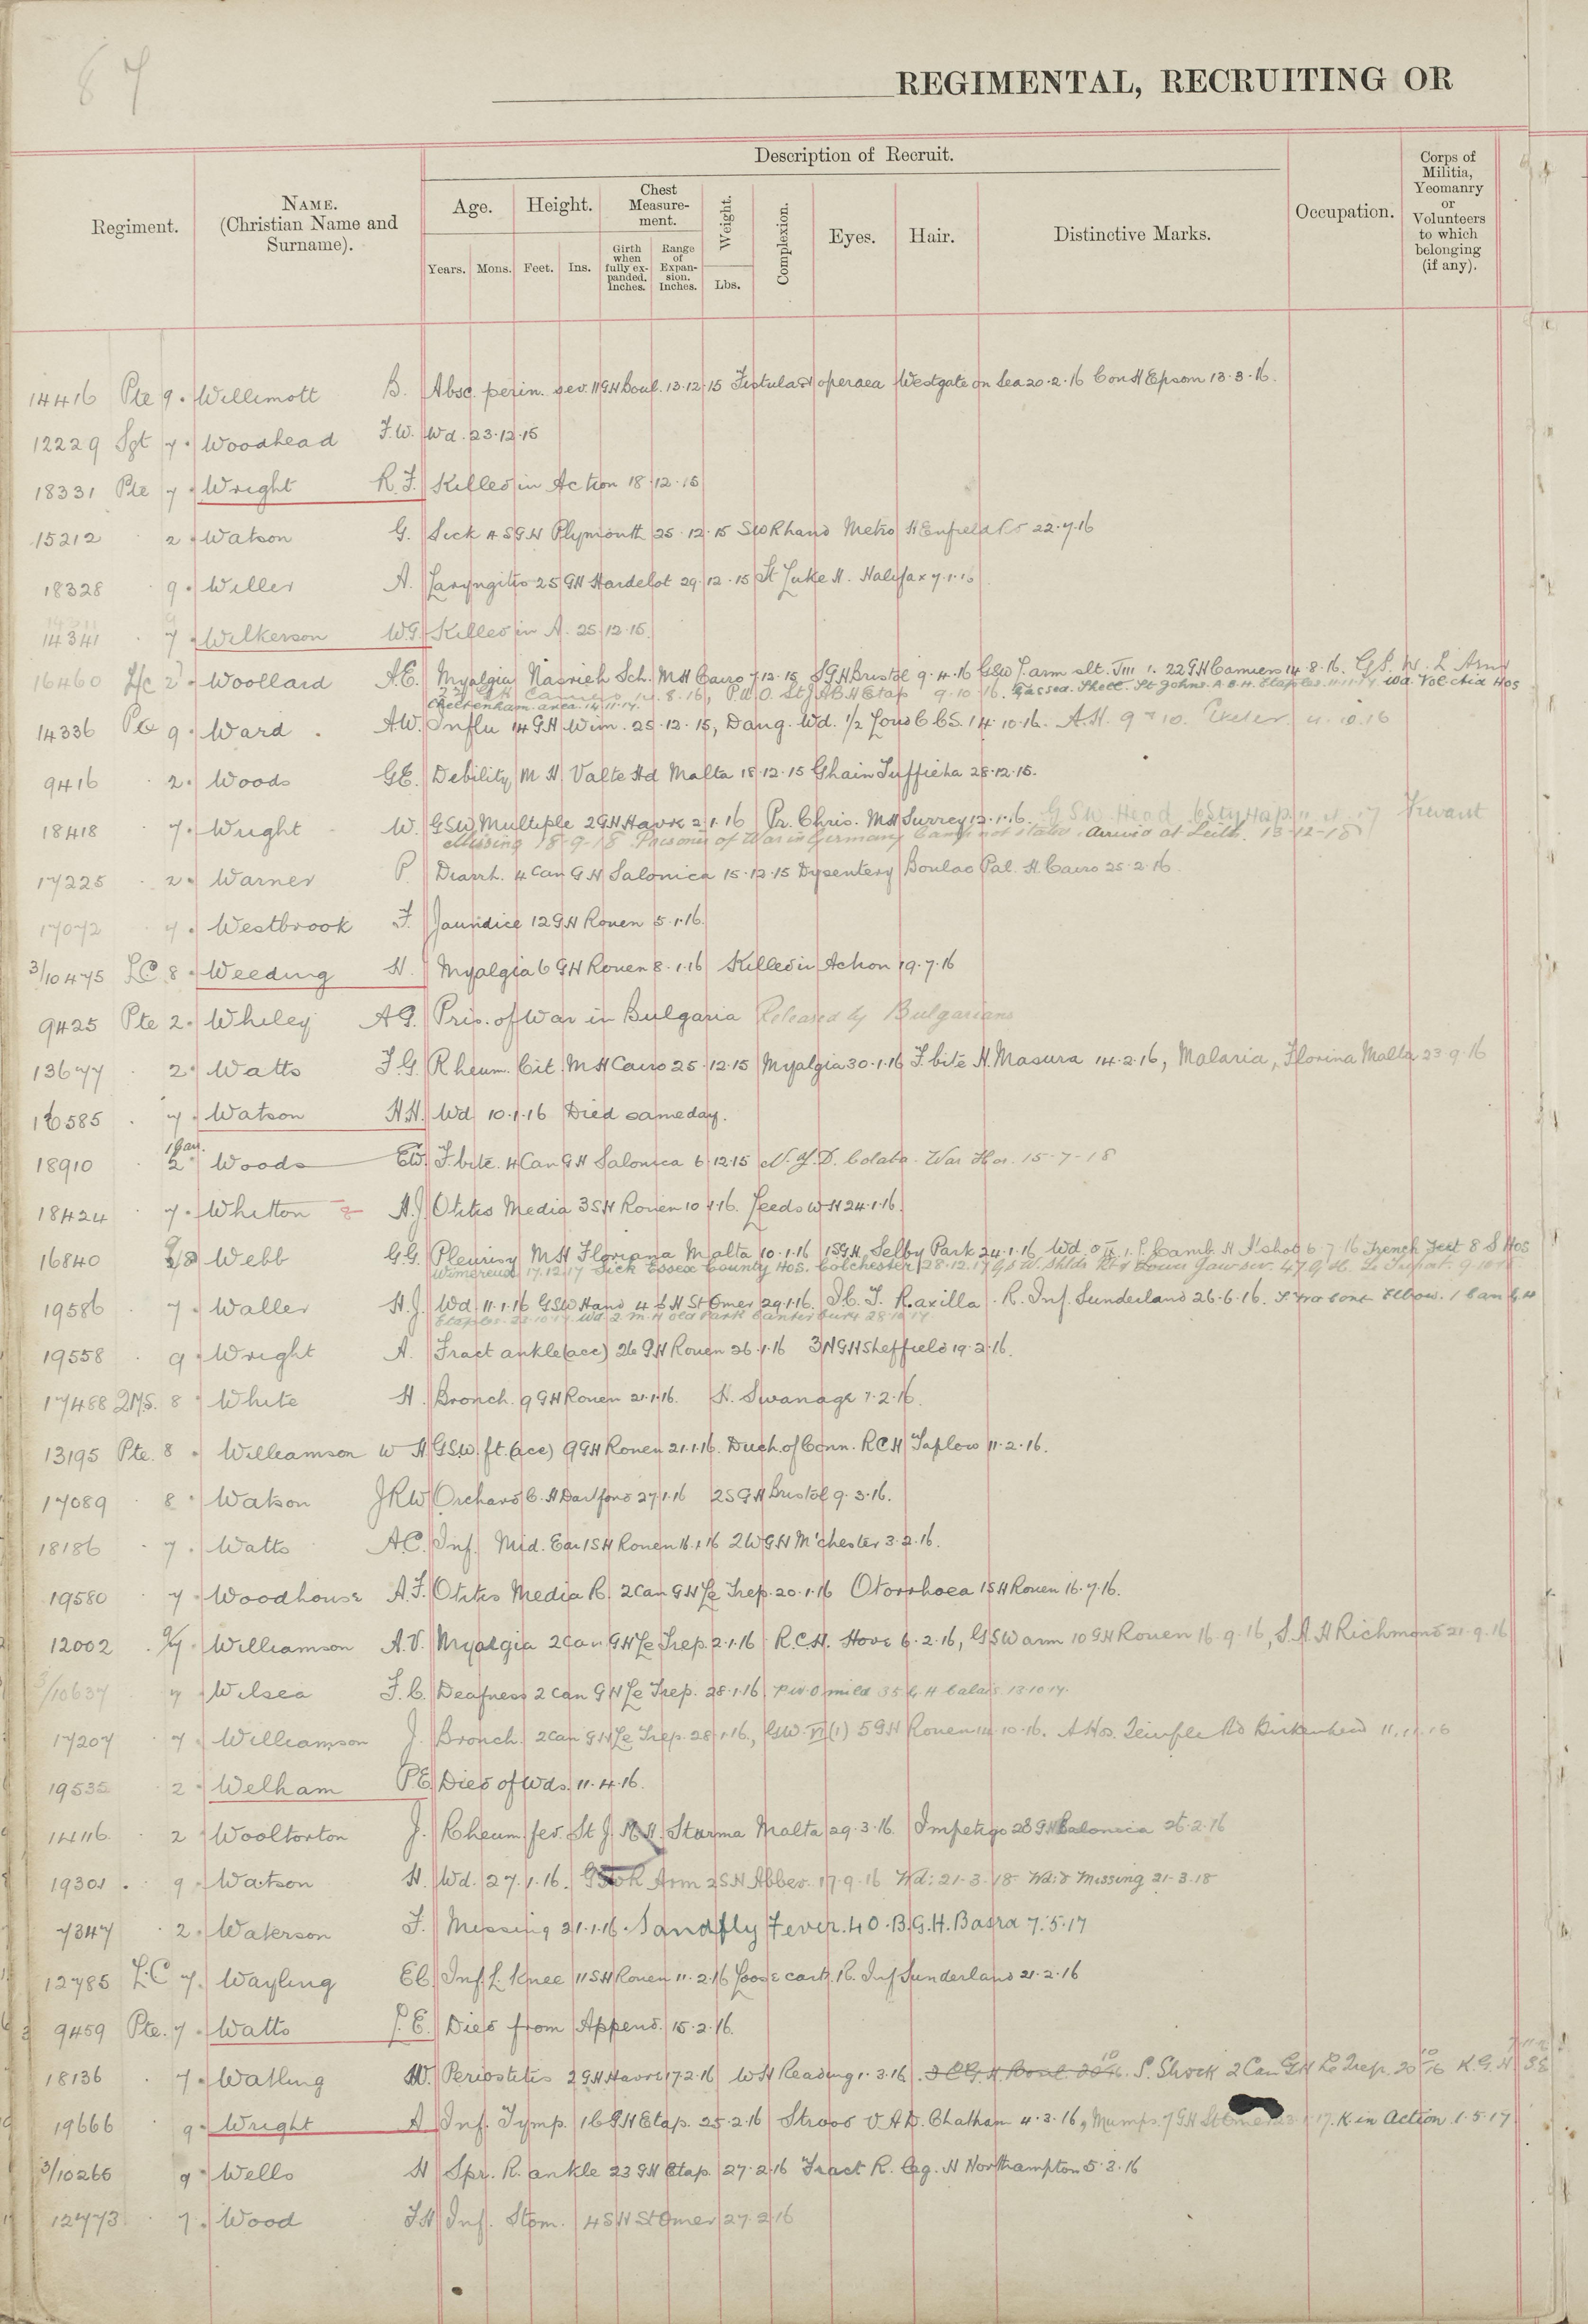 87
REGIMENTAL, RECRUITING OR
Description of Recruit.
Regiment.
NAME.
(Christian Name and
Surname).
Age.
Height.
Chest
Measure-
ment.
Weight.
Complexion.
Eyes.
Hair.
Distinctive Marks.
Occupation.
Corps of
Militia,
Yeomanry
or
Volunteers
to which
belonging
(if any).
Years.
Mons.
Feet.
Ins.
Girth
when
fully ex-
panded.
Inches.
Range
of
Expan-
sion.
Inches.
Lbs.
14416 Pte 9 Willimott B. Absc. perin. sev. 11 GH Boul. 13.12.15 Fistula operaea Westgate on Sea 20.2.16 Con H Epsom 13.3.16.
12229 Sgt 7 Woodhead F.W. Wd. 23.12.15
18331 Pte 7 Wright R.F. Killed in Action 18.12.15
15212 2 Watson G. Sick 4 SGH Plymouth 25.12.15 SW Rhand Metro H Enfield 22.7.16
18328 9 Willer A. Laryngitis 25 GH Hardelot 29.12.15 St Luke H. Halifax 7.1.16
14341 7 Wilkerson W.G. Killed in A. 25.12.15.
16460 L/c 2 Woollard A.E. Myalgia Nasrieh Sch. MH Cairo 7.12.15 SGH Bristol 9.4.16 GSW Farm slt. 22 GH Camiers 14.8.16. G.S.W. L Arm
22 GH Camiers 14.8.16, P.U.O. St J AB H Etap 9.10.16. Gassed. Shell. St Johns. A.B.H. Etaples. 11.11.17 Wa. Vol. Hos
Cheltenham area. 14.11.17.
14336 Pte 9 Ward A.W. Influ 14 GH Wim. 25.12.15, Dang. Wd. 1/2 Lond C.C.S. 14.10.16. A.H. 9 & 10. Exeter 11.10.16
9416 2 Woods G.E. Debility M H Valte Hd Malta 18.12.15 Ghain Tuffieha 28.12.15.
18418 7 Wright W. GSW Multiple 2 GH Havre 2.1.16 Pr. Chris. MH Surrey 12.1.16. GSW Head
Missing 18-9-18 Prisoner of War in Germany Camp not stated. Arrived at Leith. 13-12-18
17225 2 Warner P. Diarrh. 4 Can GH Salonica 15.12.15 Dysentery Boulac Pal. H. Cairo 25.2.16.
17072 7 Westbrook F. Jaundice 12 GH Rouen 5.1.16.
3/10475 LC 8 Weeding H. Myalgia 6 GH Rouen 8.1.16 Killed in Action 19.7.16
9425 Pte 2 Whiley A G. Pris. of War in Bulgaria Released by Bulgarians
13677 2 Watts F.G. Rheum. Cit. M H Cairo 25.12.15 Myalgia 30.1.16 F. bite H. Masura 14.2.16, Malaria, Florina Malta 23.9.16
16585 7 Watson H.H. Wd. 10.1.16 Died same day.
18910 1 Gar. 2 Woods E.W. F. bite. 4 Can GH Salonica 6.12.15 N.Y.D. Colaba War Hos. 15-7-18
18424 7 Whitton A.J. Otitis Media 3 SH Rouen 10.1.16. Leeds WH 24.1.16.
16840 Webb G.G. Pleurisy MH Floriana Malta 10.1.16 1 SGH. Selby Park 24.1.16 Wd. Camb. H A'shot 6.7.16 Trench Feet 8 S Hos
Wimereux 17.12.17 Sick Essex County Hos. Colchester 28.12.17 GSW. Shldr Rt & Lower Jaw sev. 47 GH. Le Treport.
19586 7 Waller H.J. Wd 11.1.16 GSW Hand 4 S H St Omer 29.1.16. R. axilla. R. Inf. Sunderland 26.6.16. Elbow. 1 Can GH
Etaples. 22.10.17. Wd. 2. M. H old Park Canterbury 28.10.17
19558 9 Wright A. Fract ankle (acc) 26 GH Rouen 26.1.16 3 N GH Sheffield 19.2.16.
17488 QMS. 8 White H. Bronch. 9 GH Rouen 21.1.16. H. Swanage 7.2.16.
13195 Pte. 8 Williamson W H GSW. ft. (acc) 9 GH Rouen 21.1.16. Duch. of Conn. RCH Taplow 11.2.16.
17089 8 Watson JRW Orchard C. H Dartford 27.1.16 2 SGH Bristol 9.3.16.
18186 7 Watts A.C. Inf. Mid. Ear 1 SH Rouen 16.1.16 2 W GH M'chester 3.2.16.
19580 7 Woodhouse A.F. Otitis Media R. 2 Can GH Le Trep. 20.1.16 Otorrhoea 1 SH Rouen 16.7.16.
12002 9/7 Williamson A.V. Myalgia 2 Can GH Le Trep. 2.1.16 R.C.H. Hove 6.2.16, GSW arm 10 GH Rouen 16.9.16, S.A.H Richmond 21.9.16
3/10637 7 Wilsea F.C. Deafness 2 Can GH Le Trep. 28.1.16 P.U.O mild 35 G.H Calais 13.10.17.
17207 7 Williamson J. Bronch. 2 Can GH Le Trep. 28.1.16, GSW. VI(1) 5 GH Rouen 14.10.16. A Hos. Temple Rd Birkenhead 11.11.16
19535 2 Welham P E Died of Wds. 11.4.16.
14116 2 Wooltorton J. Rheum. fev. St J. M H. Sturma Malta 29.3.16. Impetigo 28 GH Salonica 26.2.16
19301 9 Watson H. Wd. 27.1.16. GSW R Arm 2 SH Abbev. 17.9.16 Wd: 21-3-18 Wd: & Missing 21-3-18
7347 2 Waterson F. Missing 21.1.16. Sandfly Fever. 40. B.G.H. Basra 7.5.17
12785 L.C 7 Wayling E C. Inf. L. Knee 11 SH Rouen 11.2.16 Loose cart. R. Inf Sunderland 21.2.16
9459 Pte. 7 Watts P.E. Died from Append. 15.2.16.
18136 7 Watling W. Periostitis 2 GH Havre 17.2.16 W H Reading 1.3.16. S. Shock 2 Can GH Le Trep. 20/10/16 K.G.H
19666 9 Wright A Inf. Tymp. 16 GH Etap. 25.2.16 Strood V.A.D. Chatham 4.3.16, Mumps. 7 GH St Omer 17. K in Action 1.5.17
3/10266 9 Wells H Spr. R. ankle 23 GH Etap. 27.2.16 Fract R. leg. H Northampton 5.3.16
12473 7 Wood F.H Inf. Stom. 4 SH St Omer 27.2.16